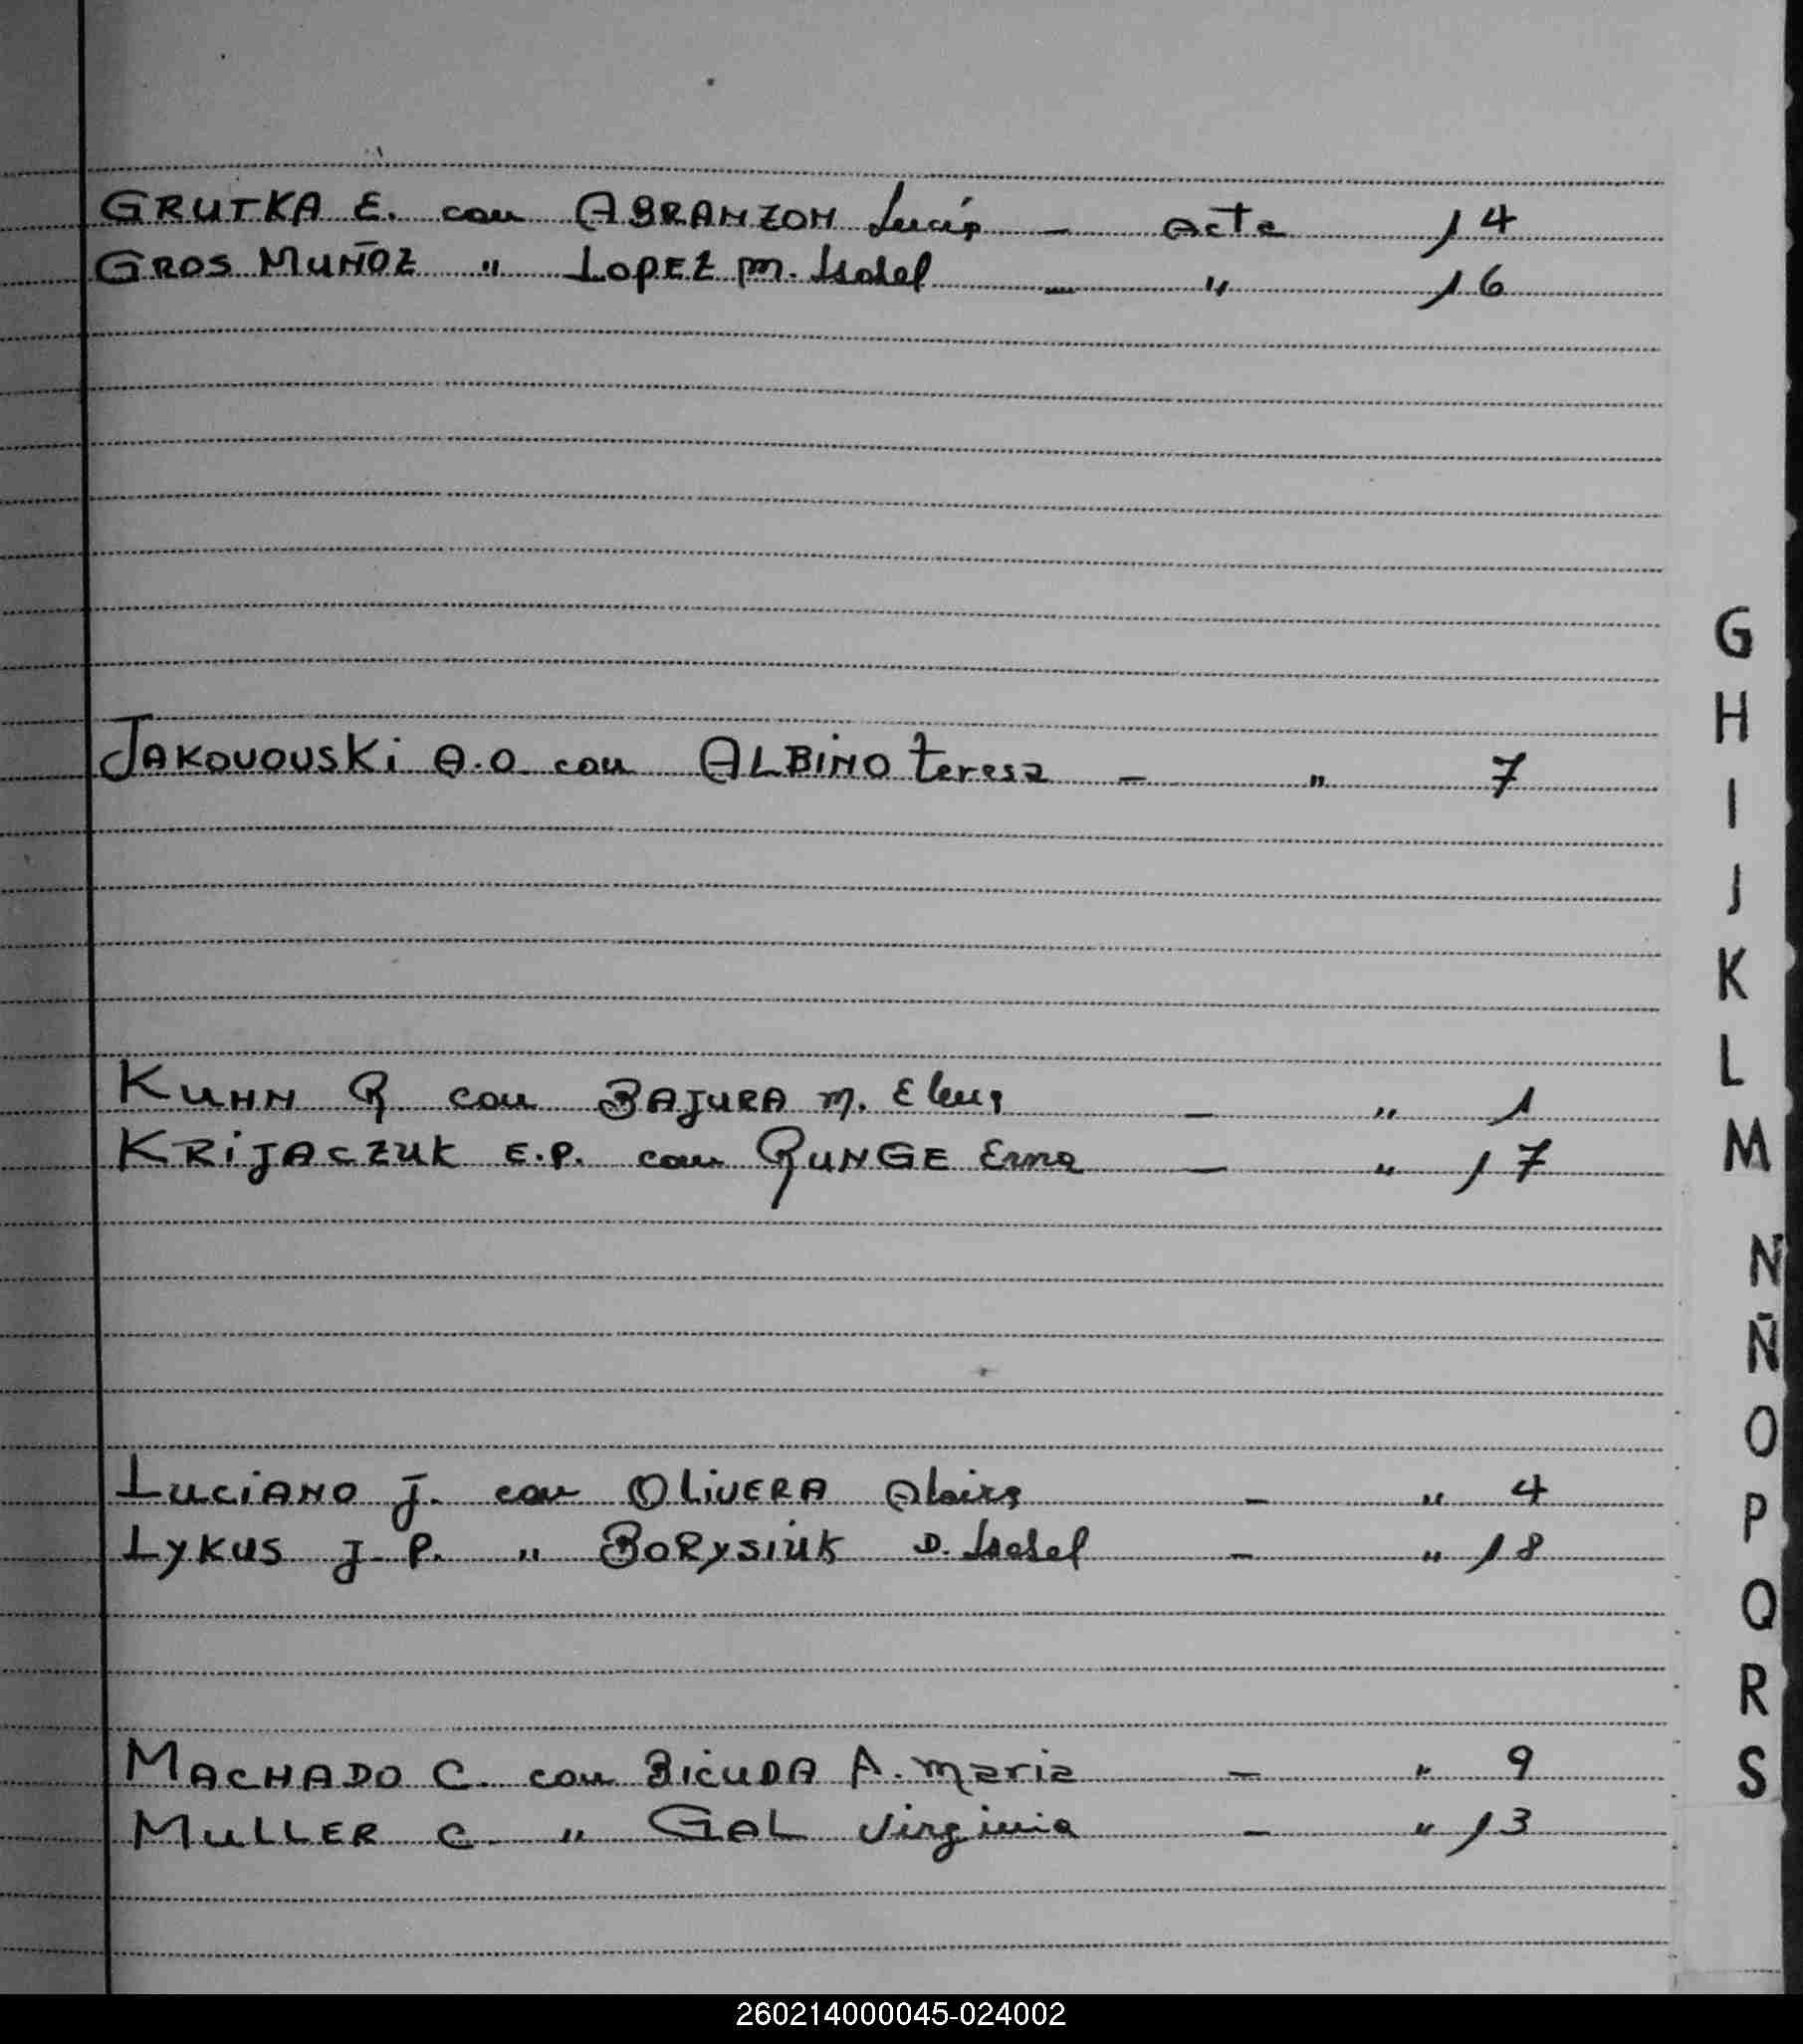 GRUTKA E. con ABRAMZON Lucía - Acta 14
GROS MUÑOZ " LOPEZ M. Isabel - " 16
JAKOVOUSKi A.O. con ALBiNO teresa - " 7
KUHN R con BAJURA M. Elena - " 1
KRiJACZUK E.P. con RUNGE Erna - " 17
LUCiANO J. con OLiVERA Alcira - " 4
LYKUS J. P. " BORYSiUK D. Isabel - " 18
MACHADO C. con BiCUDA A. Maria - " 9
MULLER C. " GAL Virginia - " 13
G
H
I
J
K
L
M
N
Ñ
O
P
Q
R
S
260214000045-024002